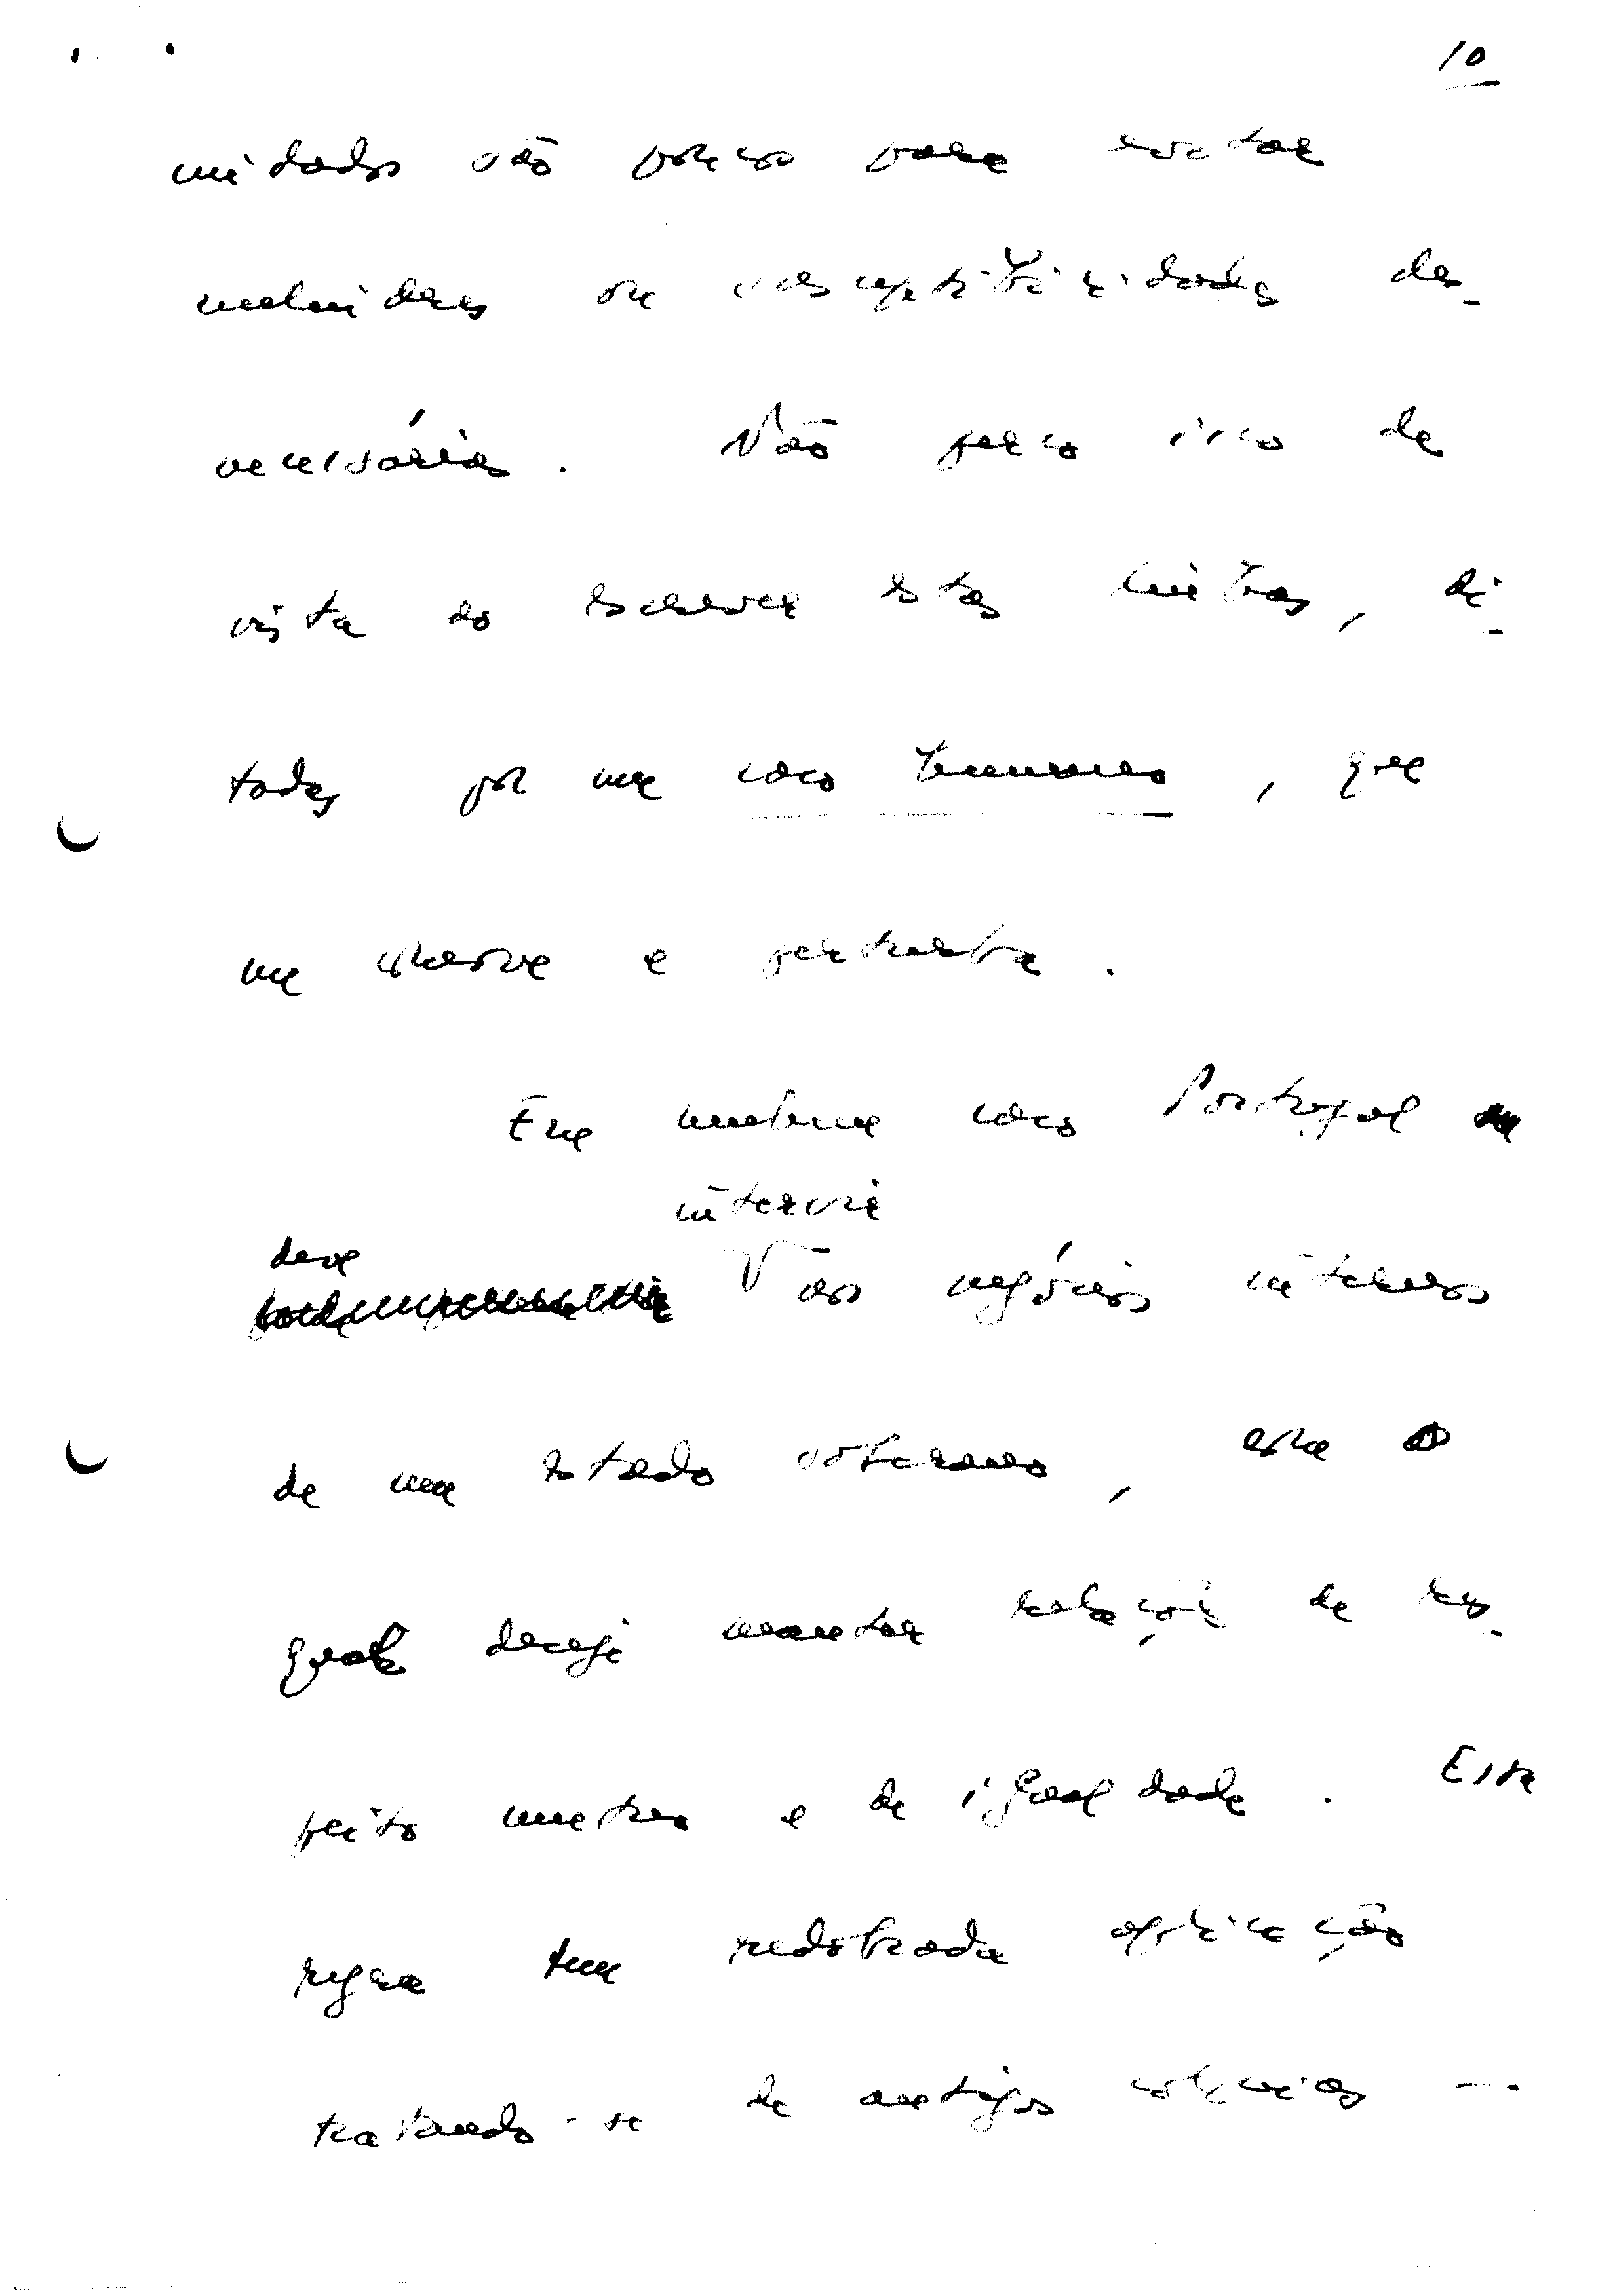 10
cuidados são poucos para evitar
melindres ou susceptibilidades des-
necessárias. Não perco isso de
vista ao escrever estas linhas, di-
tadas por um caso humano, que
me comove e perturba.
Em nenhum caso Portugal
intervir
deve
aos negócios internos
de um Estado soberano, com o
qual deseje manter relações de res-
peito mútuo e de igualdade. Esta
regra tem redobrada aplicação
tratando-se de antigas colónias -